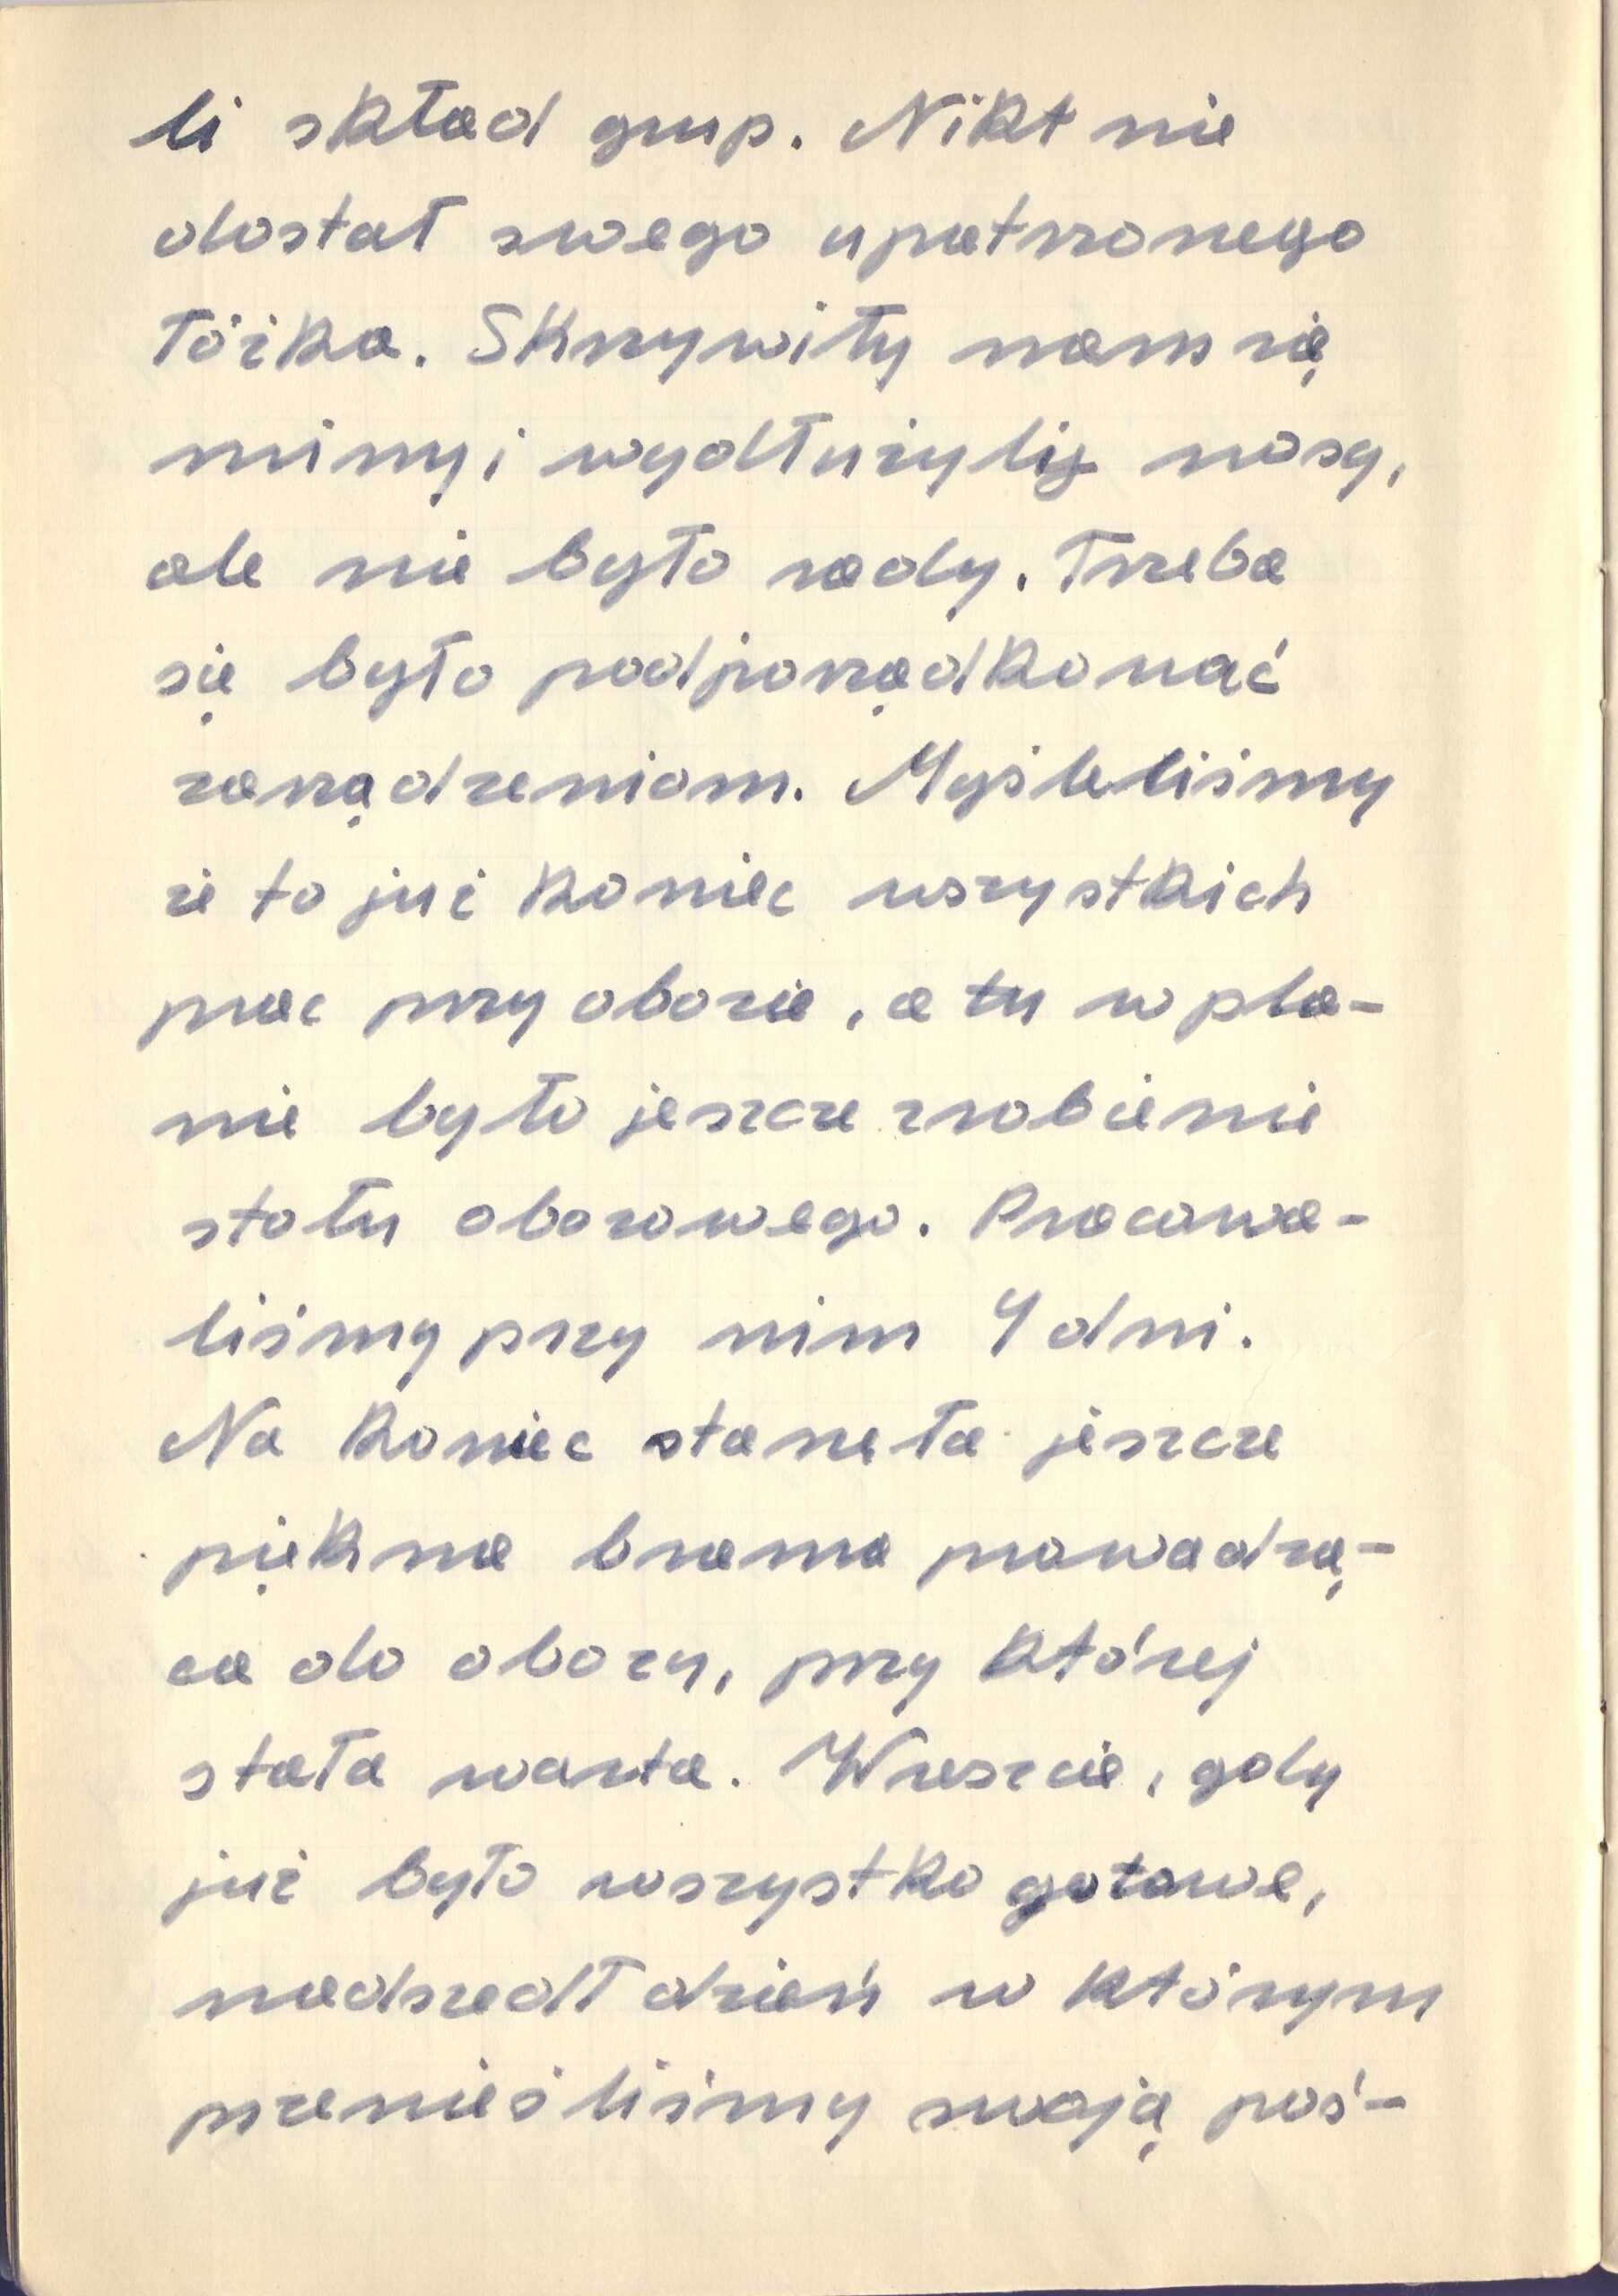 li skład grup. Nikt nie
dostał swego upatrzonego
łóżka. Skrzywiły nam się
miny i wydłużyły nosy,
ale nie było rady. Trzeba
się było podporządkować
zarządzeniom. Myśleliśmy
że to już koniec wszystkich
prac przy obozie, a tu w pla-
nie było jeszcze zrobienie
stołu obozowego. Pracowa-
liśmy przy nim 4 dni.
Na koniec staneła jeszcze
piękna brama prowadzą-
ca do obozu, przy której
stała warta. Wreszcie, gdy
już było wszystko gotowe,
nadszedł dzień w którym
przenieśliśmy swoją poś-